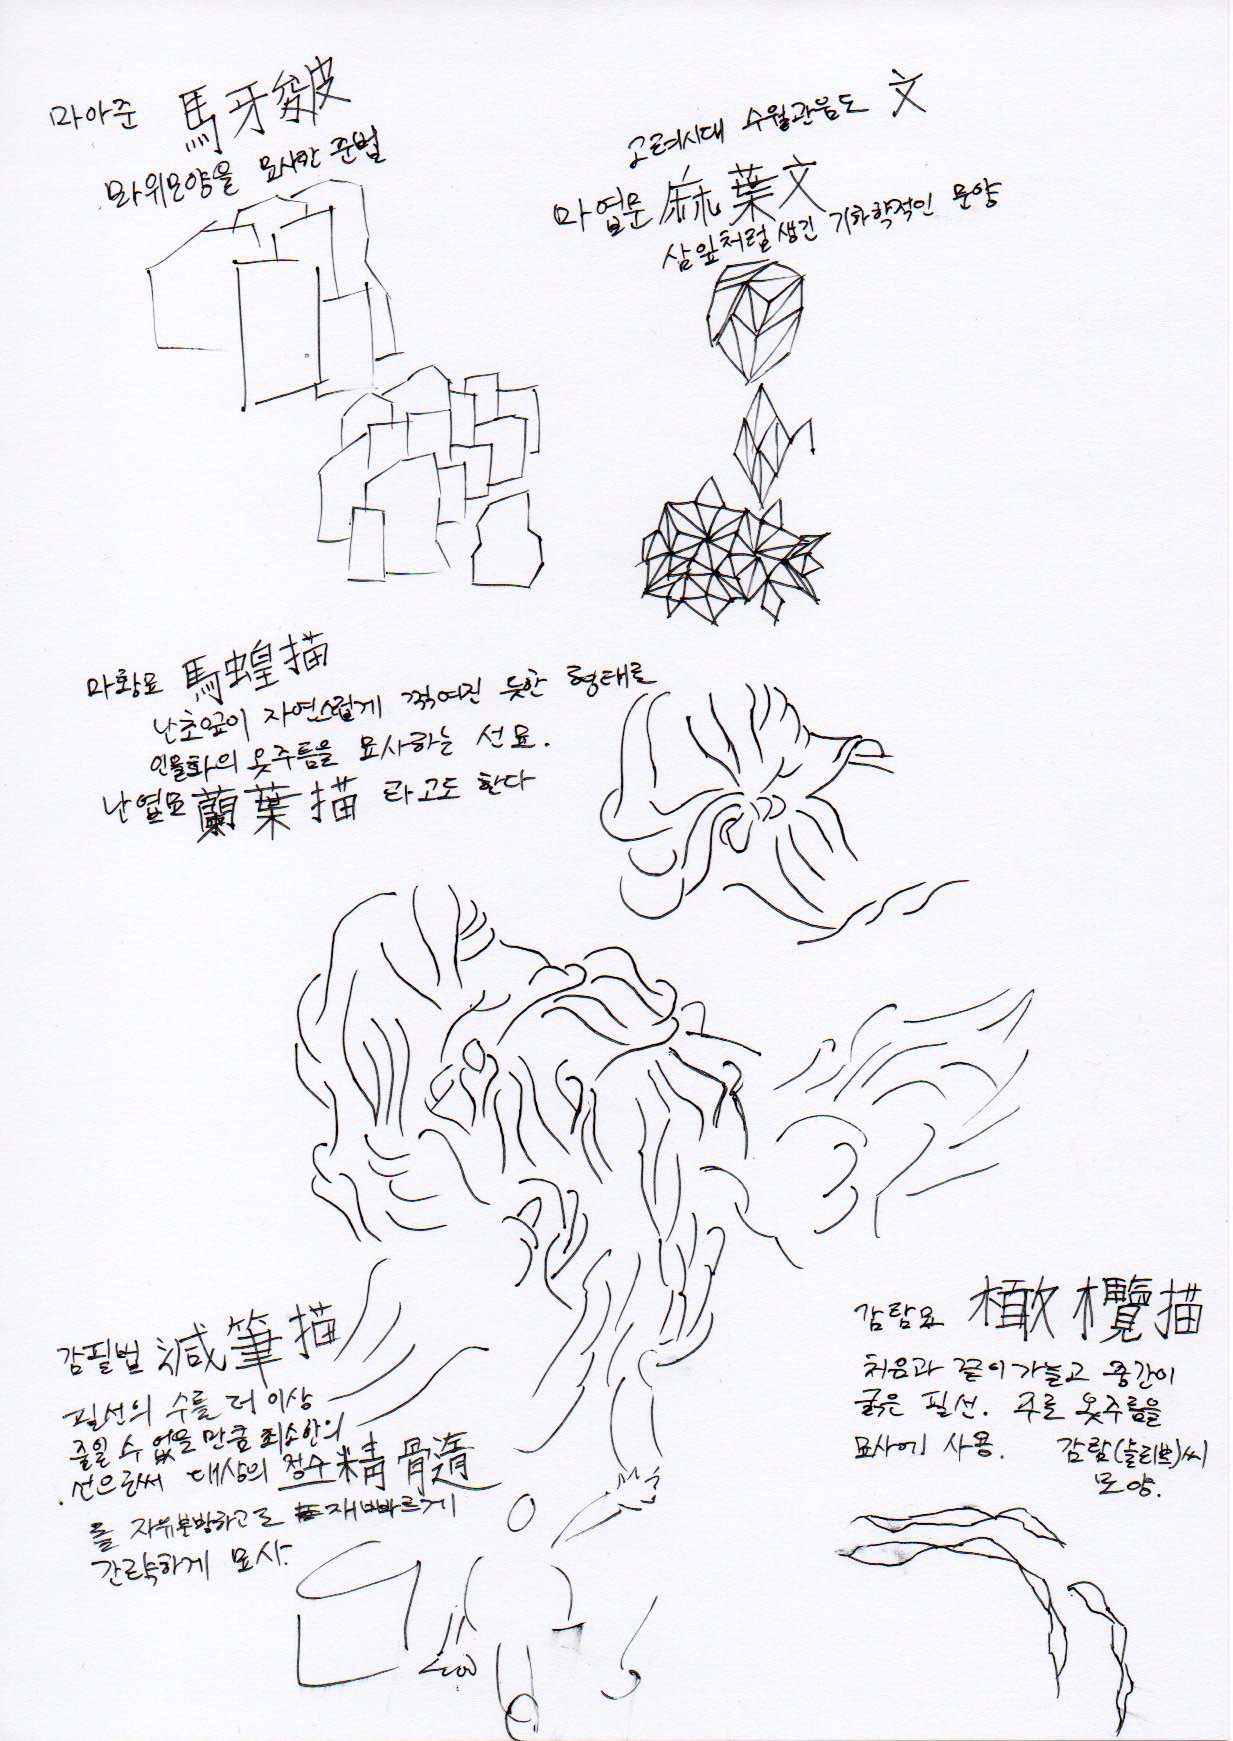 마아준 馬牙皴
바위모양을 묘사한 준법
고려시대 수월관음도 文
마엽문 麻葉文
삼잎처럼 생긴 기하학적인 문양
마황묘 馬蝗描
난초잎이 자연스럽게 꺾여진 듯한 형태로
인물화의 옷주름을 묘사하는 선묘.
난엽묘 蘭葉描 라고도 한다
감필법 減筆描
필선의 수를 더 이상
줄일 수 없을 만큼 최소한의
선으로써 대상의 정수 精髓
를 자유분방하고도 재빠르게
간략하게 묘사.
감람묘 橄欖描
처음과 끝이 가늘고 중간이
굵은 필선. 주로 옷주름을
묘사에 사용. 감람(올리브)씨
모양.